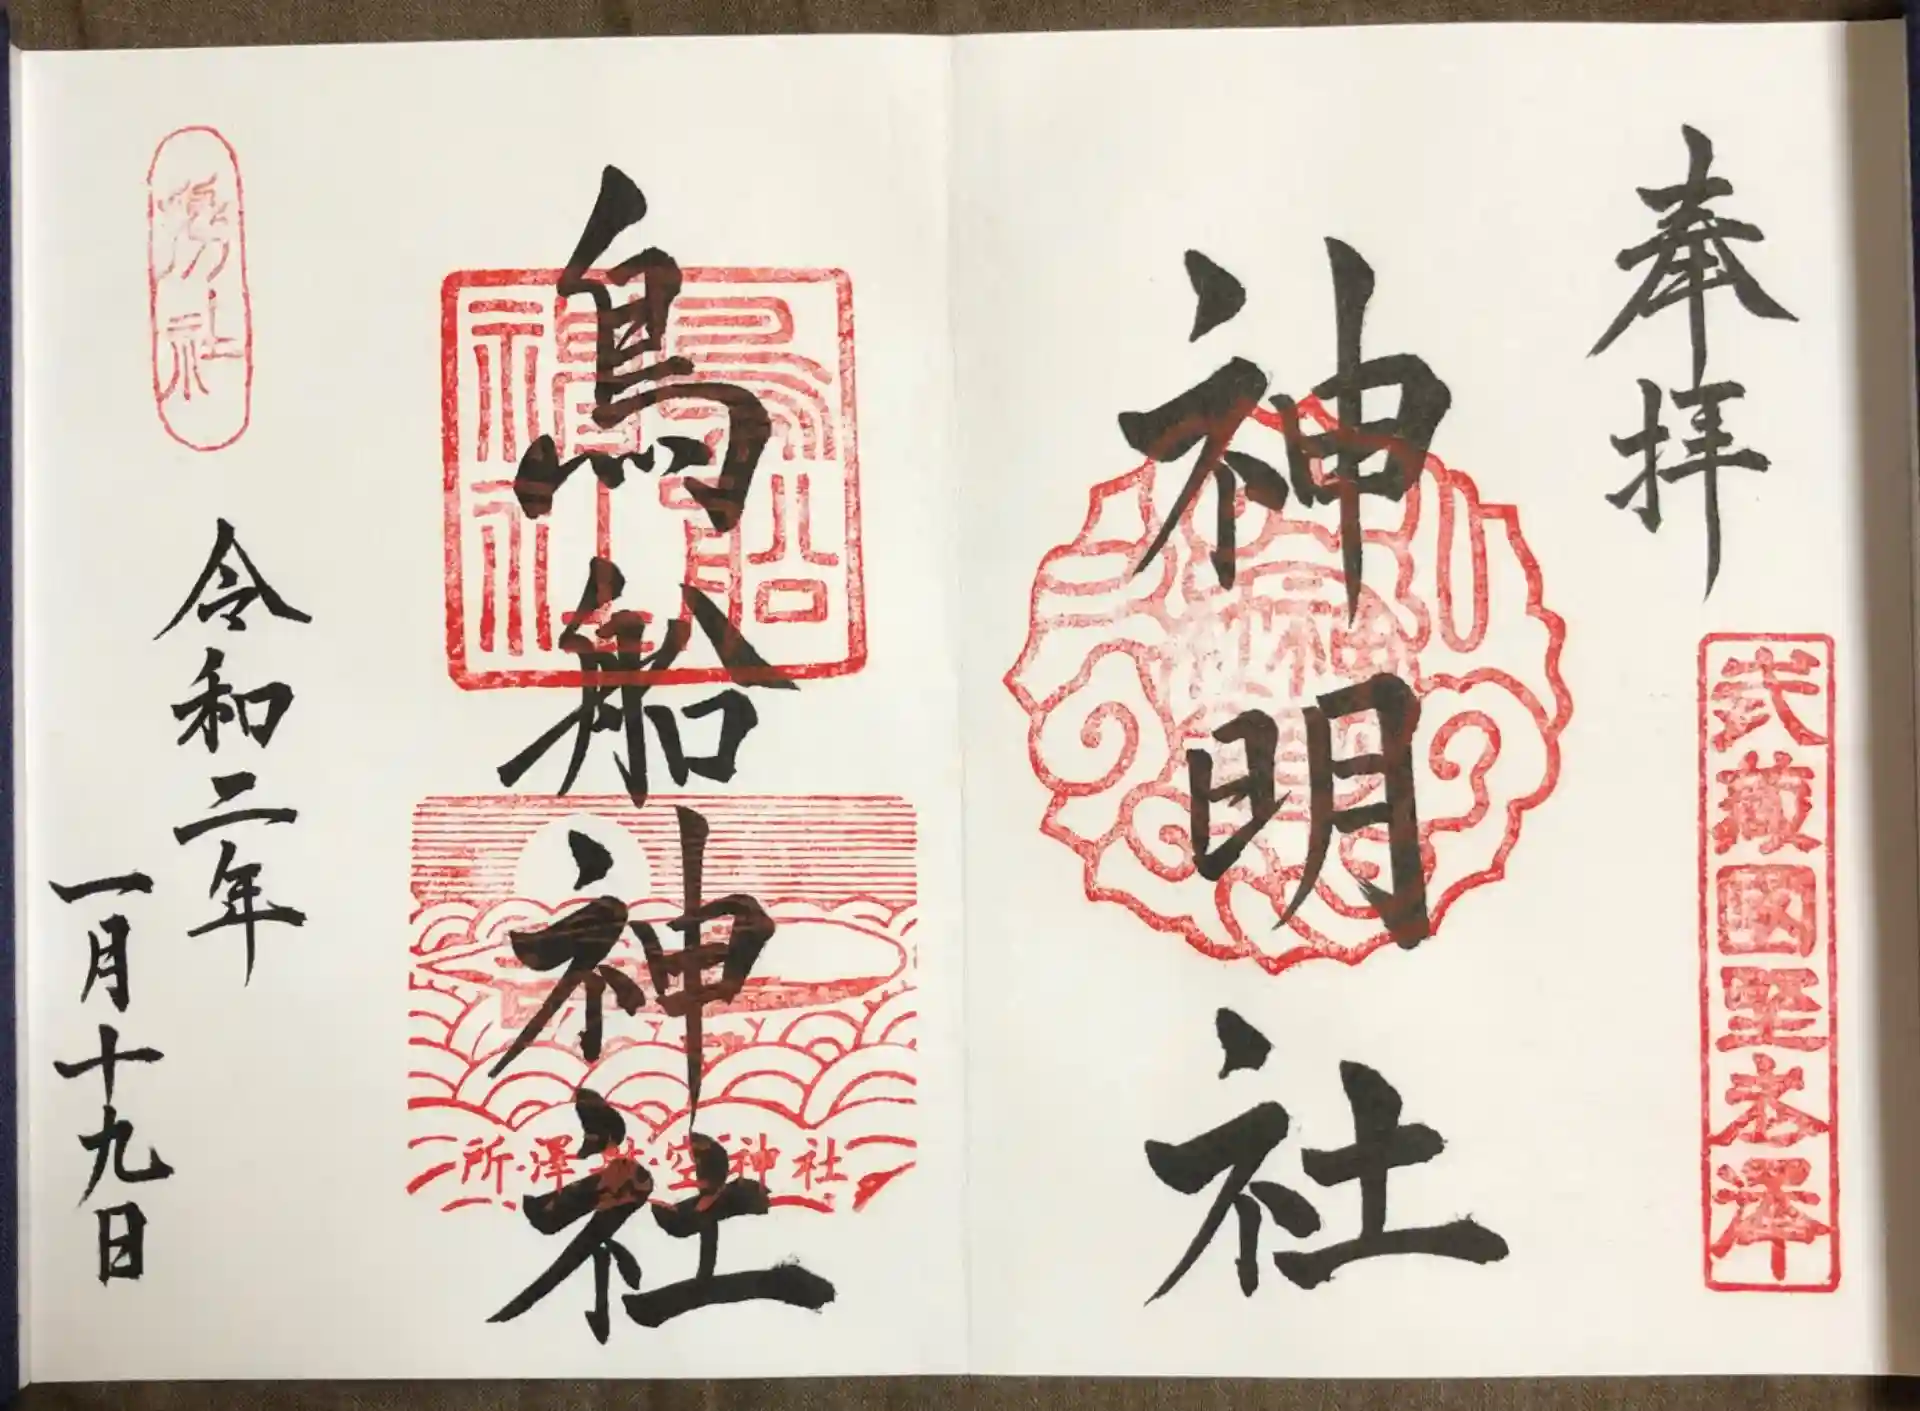 奉拝
武蔵國野老澤
神明社
鳥船神社
鳥船神社
所澤航空神社
令和二年
一月十九日